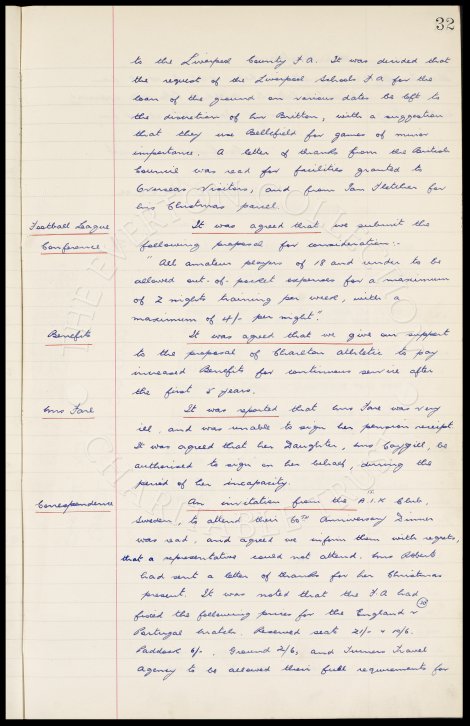 32
to the Liverpool County F.A. It was decided that
the request of the Liverpool Schools F.A for the
loan of the ground on various dates be left to
the discretion of Mr Britton, with a suggestion
that they use Bellefield for games of minor
importance. A letter of thanks from the British
Council was read for facilities granted to
Overseas Visitors, and from Ian Fletcher for
his Christmas parcel.
Football League
Conference.
It was agreed that we submit the
following proposal for consideration:-
"All amateur players of 18 and under to be
allowed out-of-pocket expenses for a maximum
of 2 nights training per week, with a
maximum of 4/- per night".
Benefits
It was agreed that we give our support
to the proposal of Charlton Athletic to pay
increased Benefits for continuous service after
the first 5 years.
Mrs Fare
It was reported that Mrs Fare was very
ill, and was unable to sign her pension receipt.
It was agreed that her Daughter, Mrs Caygill, be
authorised to sign on her behalf, during the
period of her incapacity.
Correspondence
An invitation from the A.I.K Club,
Sweden, to attend their 60th Anniversary Dinner
was read, and agreed we inform them with regrets,
that a representative could not attend. Mrs Roberts
had sent a letter of thanks for her Christmas
present. It was noted that the F.A had
fixed the following prices for the England v
Portugal match. Reserved seats 21/- & 10/6.
Paddock 6/-. Ground 2/6, and Turners Travel
Agency to be allowed their full requirements for
THE EVERTON COLLECTION
CHARITABLE TRUST